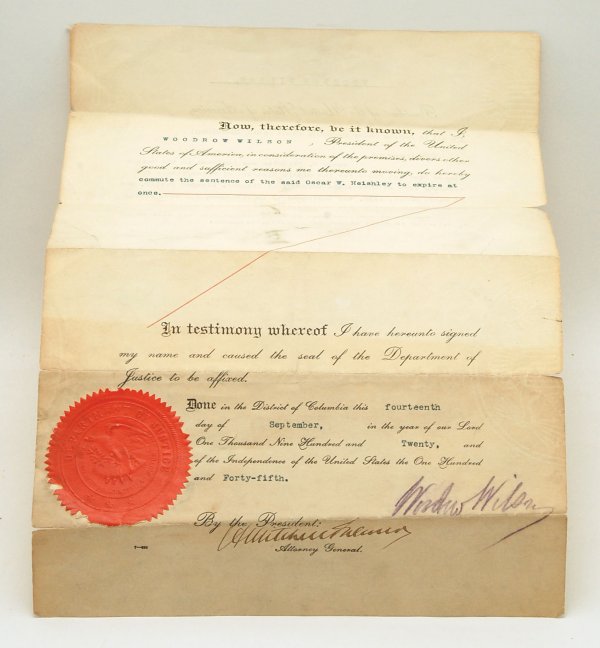 Now, therefore, be it known, that I,
WOODROW WILSON , President of the United
States of America, in consideration of the premises, divers other
good and sufficient reasons me thereunto moving, do hereby
commute the sentence of the said Oscar W. Heishley to expire at
once.
In testimony whereof I have hereunto signed
my name and caused the seal of the Department of
Justice to be affixed.
Done in the District of Columbia this fourteenth
day of September, in the year of our Lord
One Thousand Nine Hundred and Twenty, and
of the Independence of the United States the One Hundred
and Forty-fifth.
Woodrow Wilson
By the President:
A Mitchell Palmer
Attorney General.